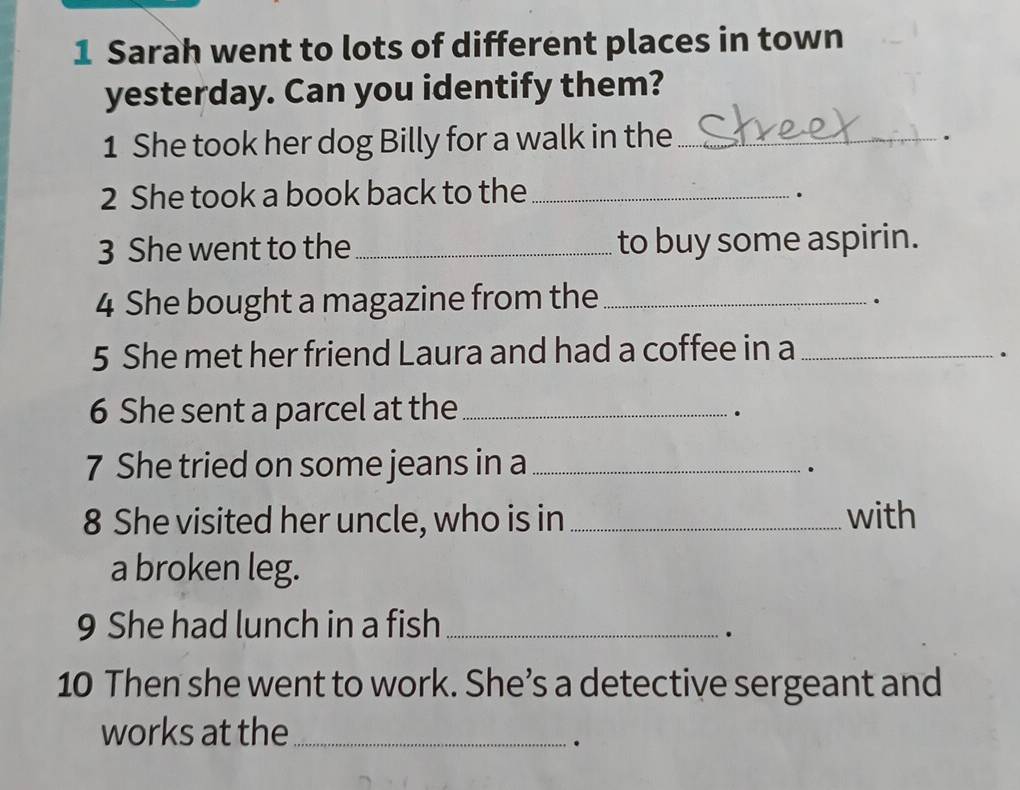 1 Sarah went to lots of different places in town
yesterday. Can you identify them?
1 She took her dog Billy for a walk in the Street.
2 She took a book back to the ____.
3 She went to the ____ to buy some aspirin.
4 She bought a magazine from the ____.
5 She met her friend Laura and had a coffee in a ____.
6 She sent a parcel at the ____.
7 She tried on some jeans in a ____.
8 She visited her uncle, who is in ____ with
a broken leg.
9 She had lunch in a fish ____.
10 Then she went to work. She's a detective sergeant and
works at the ____.